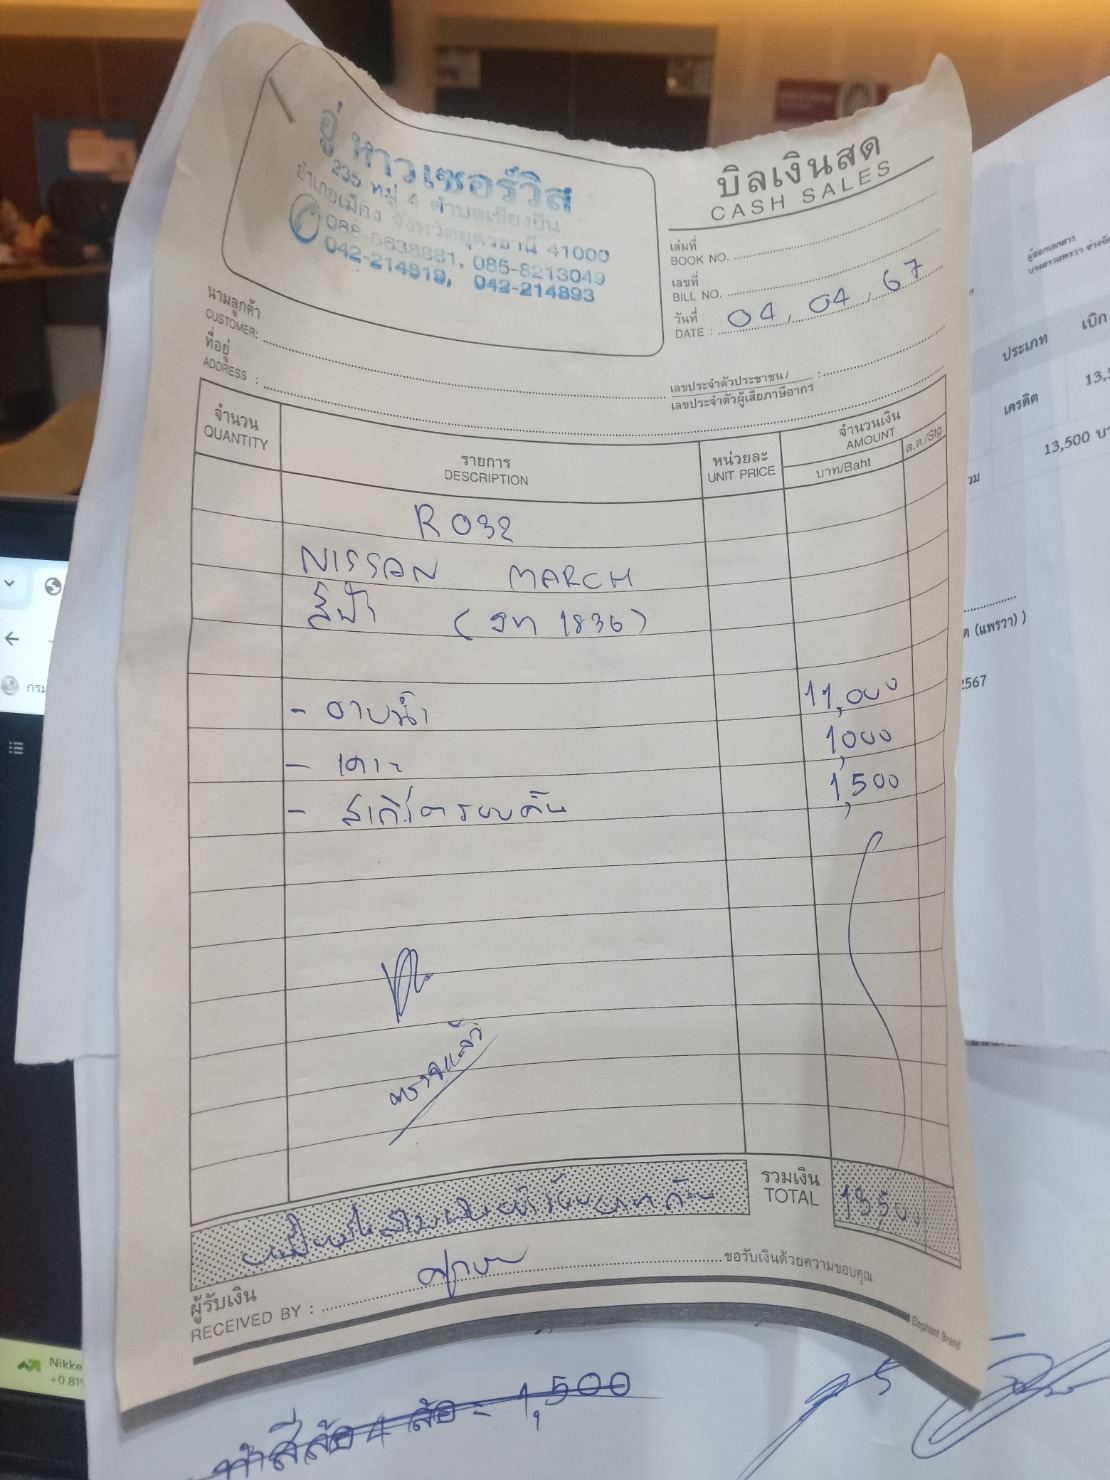 อู่ หาวเซอร์วิส
235 หมู่ 4 ตำบลเชียงยืน
อำเภอเมือง จังหวัดอุดรธานี 41000
088-5638881, 085-8213049
042-214819, 042-214893
บิลเงินสด
CASH SALES
เล่มที่
BOOK NO.
เลขที่
BILL NO.
วันที่
DATE : 04 / 04 / 67
นามลูกค้า
CUSTOMER:
ที่อยู่
ADDRESS :
เลขประจำตัวประชาชน / :
เลขประจำตัวผู้เสียภาษีอากร
จำนวน
QUANTITY
รายการ
DESCRIPTION
หน่วยละ
UNIT PRICE
จำนวนเงิน
AMOUNT
บาท/Baht
ส.ต./Stg.
R032
NISSAN MARCH
สีฟ้า (จท 1836)
- อาบน้ำ 11,000
- เคาะ 1,000
- สเกิร์ตรอบคัน 1,500
ตรวจแล้ว
รวมเงิน
TOTAL 13,500
ผู้รับเงิน
RECEIVED BY :
ขอรับเงินด้วยความขอบคุณ
Elephant Brand
ทำสีล้อ 4 ล้อ = 1,500
ผู้ออกเอกสาร
ประเภท เบิก
เครดิต 13,5
วม 13,500 บา
ต (แพรวา) )
2567
กรม
Nikke
+0.819